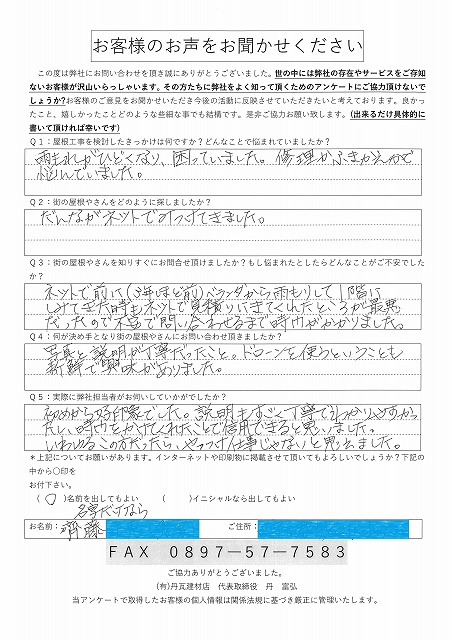 お客様のお声をお聞かせください
この度は弊社にお問い合わせを頂き誠にありがとうございました。世の中には弊社の存在やサービスをご存知
ないお客様が沢山いらっしゃいます。その方たちに弊社をよく知って頂くためのアンケートにご協力頂けないで
しょうか?お客様のご意見をお聞かせいただき今後の活動に反映させていただきたいと考えております。良かっ
たこと、嬉しかったことどのような些細な事でも結構です。是非ご協力お願い致します。(出来るだけ具体的に
書いて頂ければ幸いです)
Q1：屋根工事を検討したきっかけは何ですか?どんなことで悩まれていましたか?
雨もれがひどくなり、困っていました。修理かふきかえかで
悩んでいました。
Q2：街の屋根やさんをどのように探しましたか?
だんながネットでみつけてきました。
Q3：街の屋根やさんを知りすぐにお問合せ頂けましたか?もし悩まれたとしたらどんなことがご不安でした
か?
ネットで前に(3年ほど前)ベランダから雨もりして1階に
しみてきた時もネットで見積りにきてくれたところが最悪
だったので不安で問い合わせるまで時間がかかりました。
Q4：何が決め手となり街の屋根やさんにお問い合わせ頂きましたか?
写真と説明が丁寧だったこと。ドローンを使うということも
新鮮で興味がありました。
Q5：実際に弊社担当者がお伺いしていかがでしたか?
初めから好印象でした。説明もすごく丁寧でわかりやすかっ
たし、時間をかけてくれたことで信用できると思いました。
いわゆるこの方だったら、やっつけ仕事じゃないと思いました。
＊上記についてお願いがあります。インターネットや印刷物に掲載させて頂いてもよろしいでしょうか?下記の
中から○印を
お付下さい。
(○)名前を出してもよい　(　)イニシャルなら出してもよい
名字だけなら
お名前： 齊藤　ご住所：
FAX 0897ー57ー7583
ご協力ありがとうございました。
(有)丹瓦建材店　代表取締役　丹　富弘
当アンケートで取得したお客様の個人情報は関係法規に基づき厳正に管理いたします。